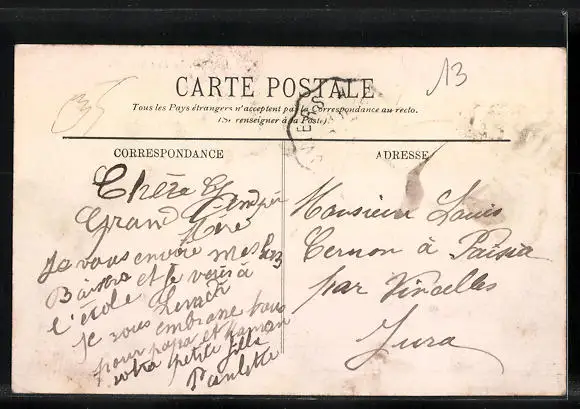 13
35
CARTE POSTALE
Tous les Pays étrangers n'acceptent pas la Correspondance au recto.
(Se renseigner à la Poste).
CORRESPONDANCE
ADRESSE
Chère
Grand
Mère
Je vous envoie mes
et je vais à
l'école
je vous embrasse tous
pour papa et maman
votre petite fille
Paulette
Monsieur Louis
Cernon à Paisia
par Vincelles
Jura